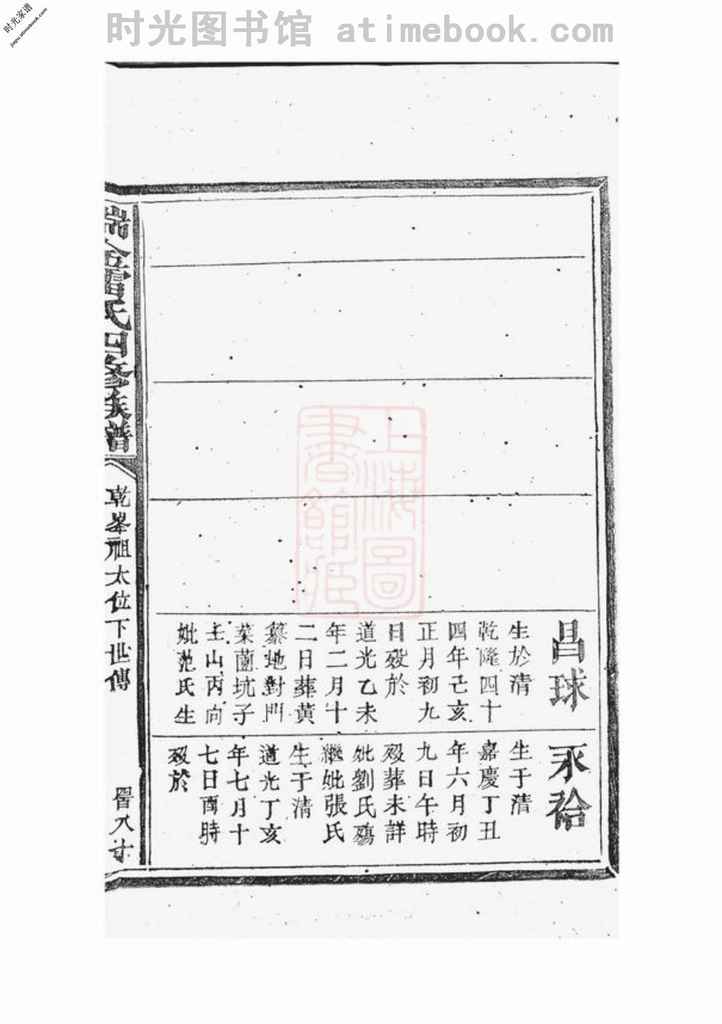 时光图书馆 atimebook.com
时光家谱
jiapu.atimebook.com
昌球
生於清
乾隆四十
四年己亥
正月初九
日殁於
道光乙未
年二月十
二日葬黄
纂地對門
菜蘭坑子
壬山丙向
妣范氏生
永
生于清
嘉慶丁丑
年六月初
九日午時
殁葬未詳
妣劉氏殤
繼妣張氏
生于清
道光丁亥
年七月十
七日酉時
殁於
瑞金雷氏四修族譜
乾峯祖太位下世傳
上海圖
書館藏